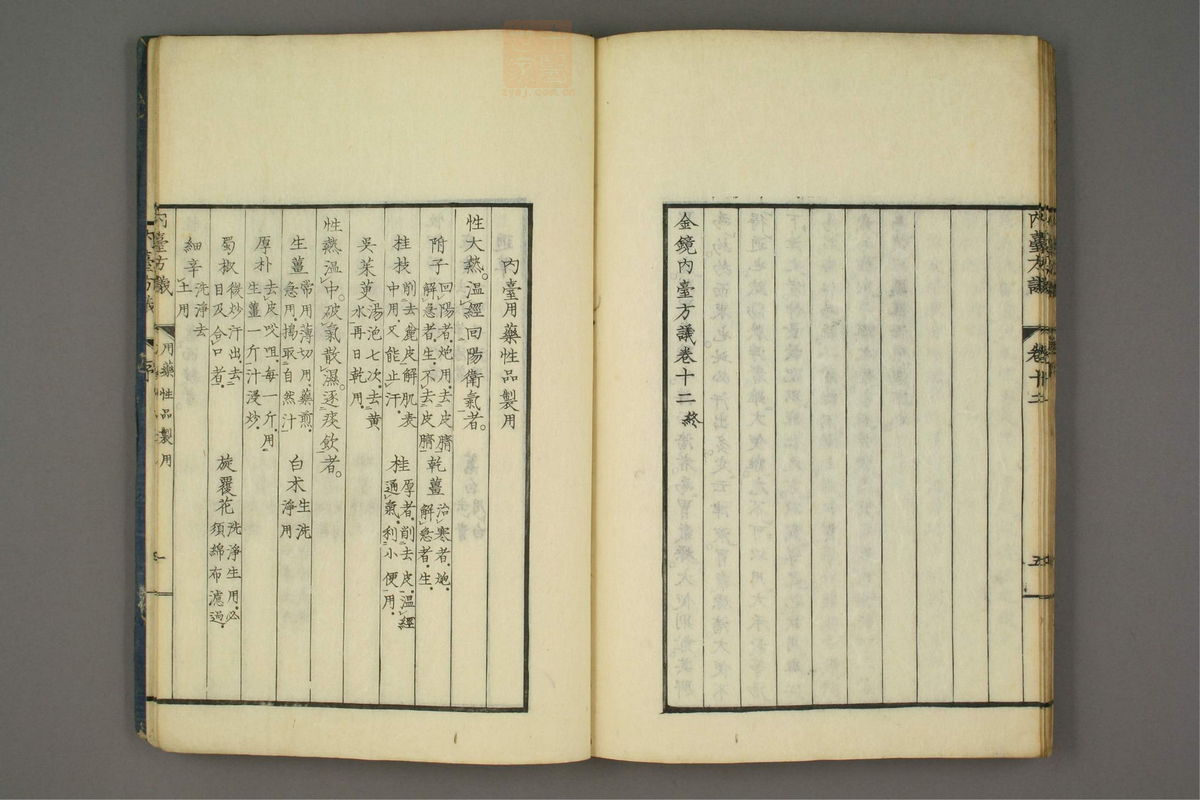 金鏡內臺方議卷十二 終
內臺方議
卷十二
五
內臺用藥性品製用
性大熱。温經回陽衛氣者。
附子 回陽者炮用去皮臍 解急者生不去皮臍 乾薑 治寒者炮 解急者生
桂枝 削去麁皮解肌表 中用又能止汗 桂 厚者削去皮温經 通氣利小便用
吳茱萸 湯泡七次去黃 水再日乾用
性熱温中。破氣散濕。逐痰飲者。
生薑 常用薄切用藥煎 急用搗取自然汁 白朮 生洗 淨用
厚朴 去皮㕮咀每一斤用 生薑一斤汁浸炒
蜀椒 微炒汗出去 目及合口者 旋覆花 洗淨生用必 須綿布濾過
細辛 洗淨去 土用
內臺方議
用藥性品製用
一
zyaj.com.cn